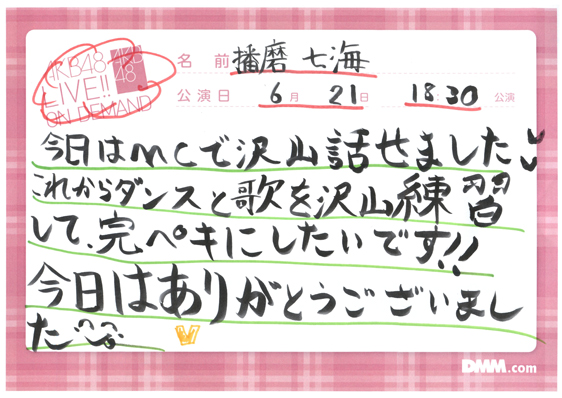 AKB48
LIVE!!
ON DEMAND
AKB
48
名 前 播磨 七海
公演日 6月 21日 18:30 公演
今日はMCで沢山話せました
これからダンスと歌を沢山練習
して、完ペキにしたいです!!
今日はありがとうございまし
た
DMM.com